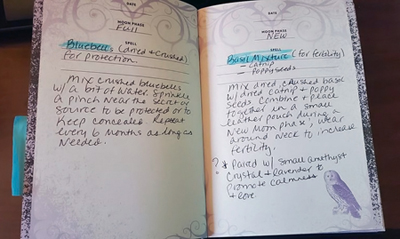 DATE
MOON PHASE
Full
SPELL
Bluebells (dried & Crushed)
for protection.
Mix crushed bluebells
w/ a bit of water. Sprinkle
a pinch near the secret or
source to be protected or to
Keep concealed. Repeat
every 6 months as long as
needed.
DATE
MOON PHASE
New
SPELL
Basel Mixture (for fertility)
- Catnip
- Poppyseeds
Mix dried, crushed basel
w/ dried catnip & poppy
seeds. Combine & place
together in a small
leather pouch during
New moon phase, wear
around neck to increase
fertility.
? * Paired w/ small amethyst
Crystal & lavender to
Promote calmness
& love.